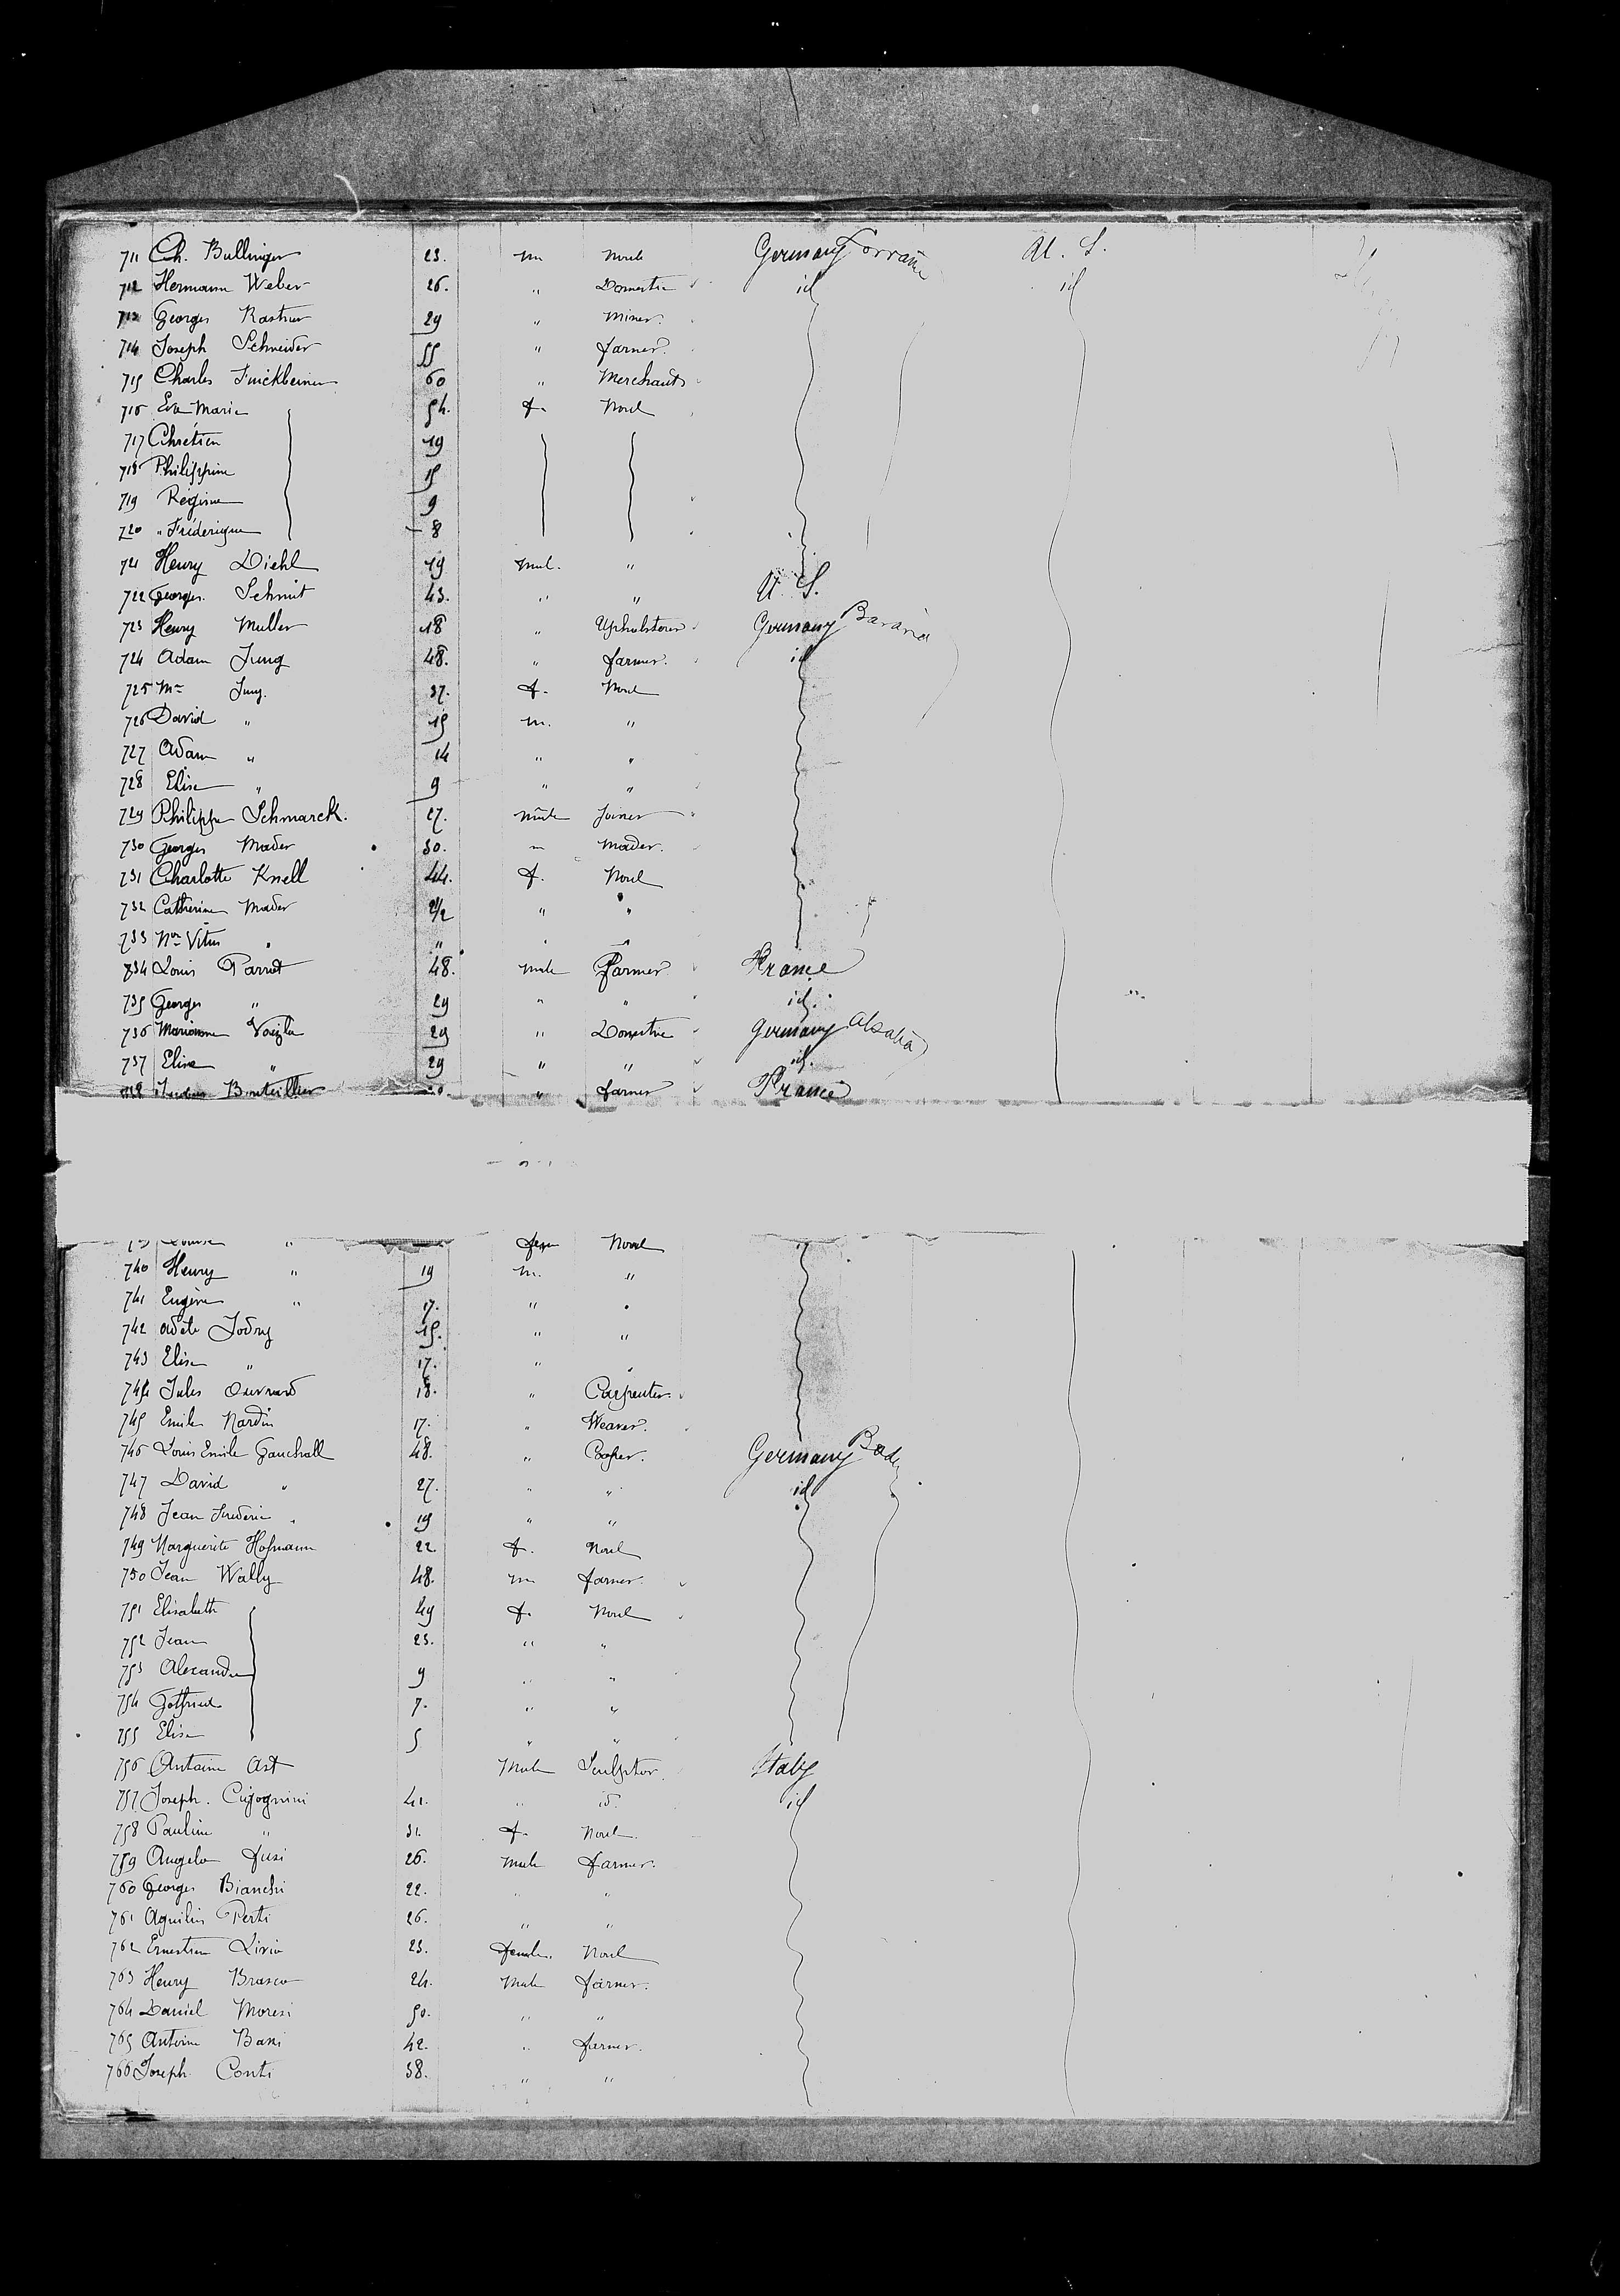 711 Ch. Bullinger 23. m None Germany Lorraine U. S.
712 Hermann Weber 26. " Domestic id id
713 Georges Kastner 29 " Miner.
714 Joseph Schneider 55 " farmer.
715 Charles Finckbeiner 60 " Merchants
716 Eva Marie 54. f. None
717 Chrétien 19
718 Philippine 15
719 Régine 9
720 " Fréderique 8
721 Henry Diehl 19 mal. "
722 Georges. Schmit 43. " " U. S.
723 Henry Muller 18 " Upholsterer Germany Bavaria
724 Adam Jung 48. " farmer. id
725 Me Jung. 37. f. None
726 David " 15 m. "
727 Adam " 14 " "
728 Elise " 9 " "
729 Philippe Schmarck. 27. male Joiner
730 Georges Mader 30. " Mader.
731 Charlotte Knell 44. f. None
732 Catherine Mader 2 1/2 " "
733 Vitus " " "
734 Louis Parrot 48. male Farmer France
735 Georges " 29 " " id.
736 Marianne 29 " Domestic Germany Alsatia
737 Elise " 29 " " id.
738 Bouteillier " farmer France
Louise " fem None
740 Henry " 19 m. "
741 Eugène " 17. " "
742 Adele Jodry 15. " "
743 Elise " 17. " "
744 Jules Ouvrard 18. " Carpenter.
745 Emile Nardin 17. " Weaver.
746 Louis Emile 48. " Cooper. Germany Bade
747 David " 27. " " id
748 Jean Frederic " 19 " "
749 Marguerite Hofmann 22 f. None
750 Jean Wally 48. m farmer.
751 Elisabeth 49 f. None
752 Jean 23. " "
753 Alexandre 9 " "
754 Gotfried 7. " "
755 Elise 5 " "
756 Antoine Ast Male Sculptor. Italy
757 Joseph. Cigognini 41. " id. id
758 Pauline " 31. f. None
759 Angelo Fusi 26. Male farmer.
760 Georges Bianchi 22. " "
761 Aquilin Perti 26. " "
762 Ernestine Livio 23. female. None
763 Henry Brasco 24. Male farmer.
764 Daniel Moresi 50. " "
765 Antoine Bassi 42. " farmer.
766 Joseph Conti 38. " "